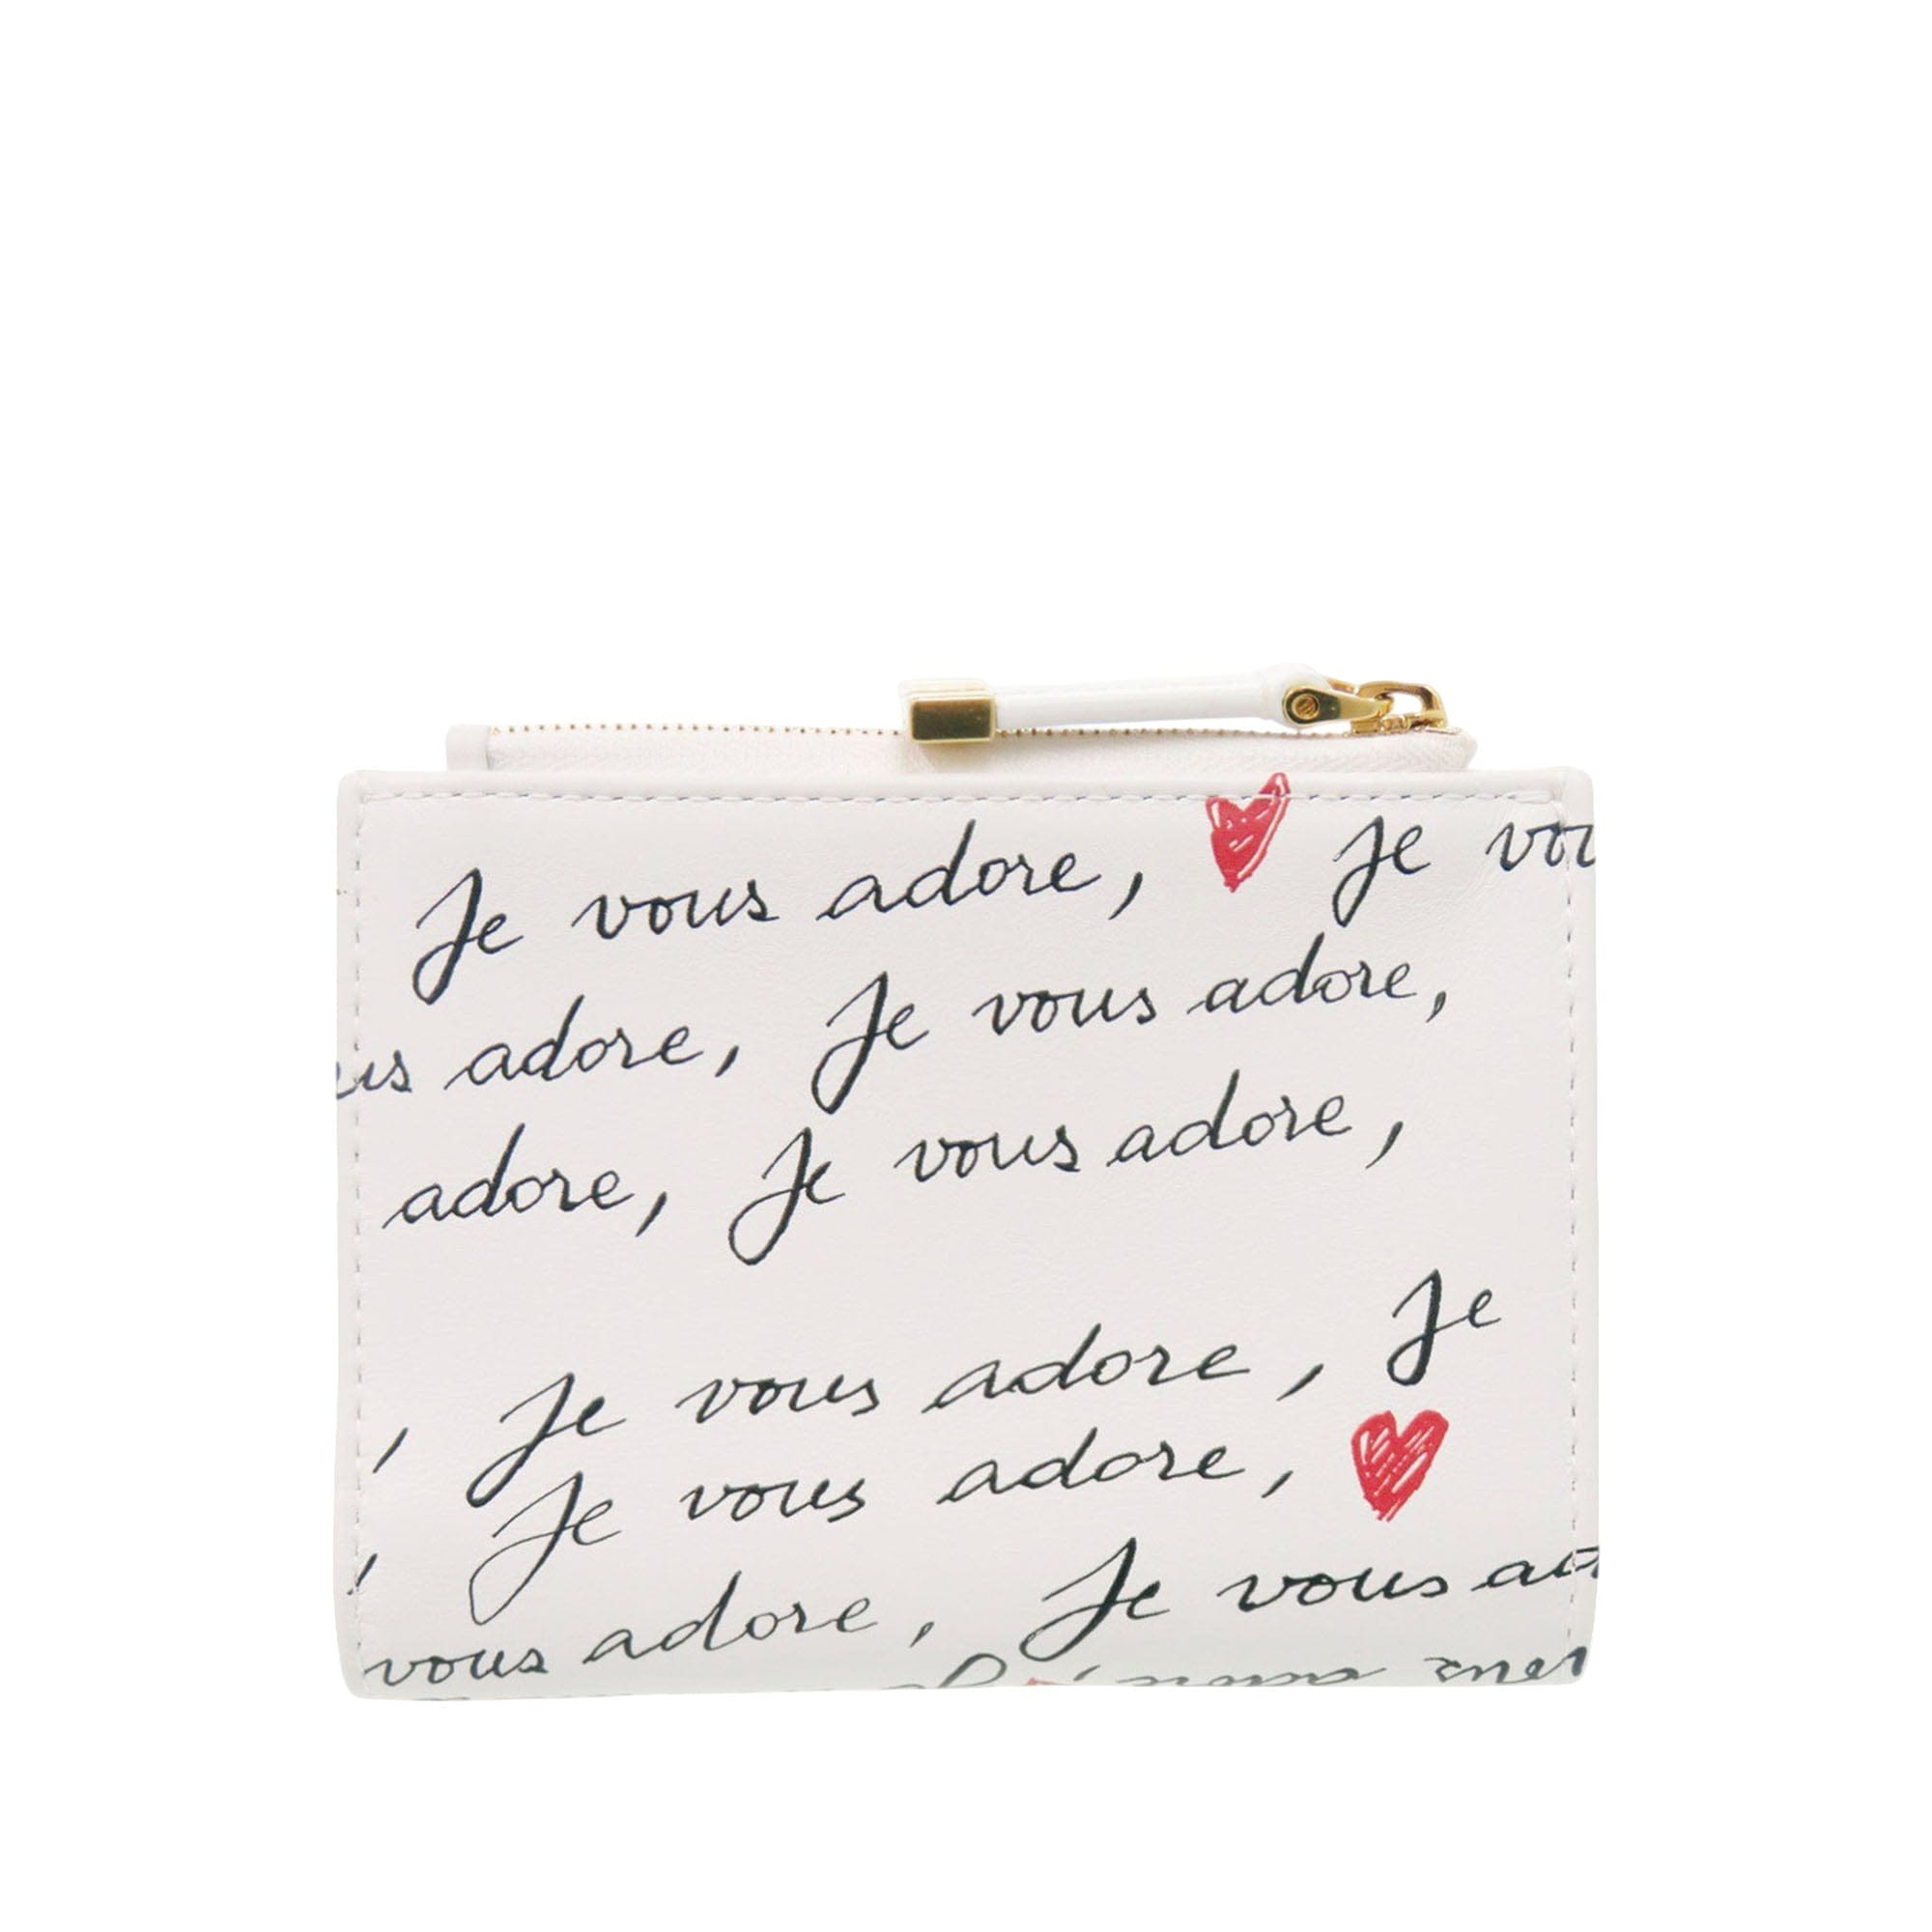 Je vous adore, Je vou
us adore, Je vous adore,
adore, Je vous adore,
, Je vous adore, Je
, Je vous adore,
vous adore, Je vous ad